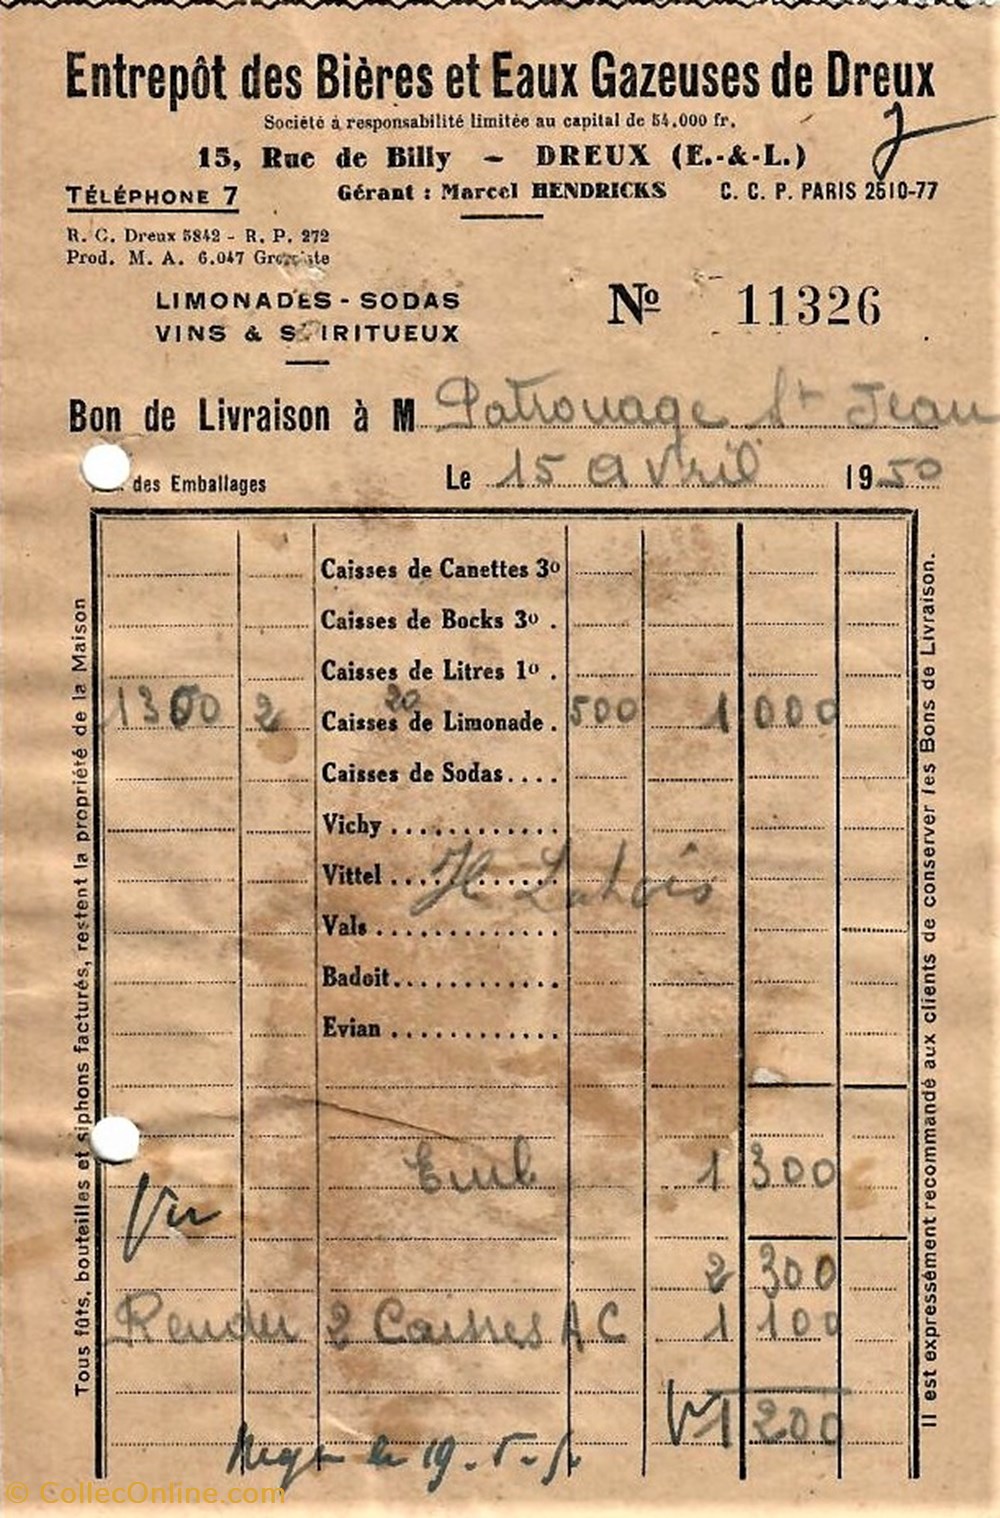 Entrepôt des Bières et Eaux Gazeuses de Dreux
Société à responsabilité limitée au capital de 54.000 fr.
15, Rue de Billy - DREUX (E.-&-L.)
TÉLÉPHONE 7 Gérant : Marcel HENDRICKS C. C. P. PARIS 2510-77
R. C. Dreux 5842 - R. P. 272
Prod. M. A. 6.047 Grossiste
LIMONADES - SODAS
VINS & SPIRITUEUX
Nº 11326
Bon de Livraison à M Patronage St Jean
des Emballages Le 15 avril 1950
Caisses de Canettes 3º
Caisses de Bocks 3º .
Caisses de Litres 1º .
20
1300 2 Caisses de Limonade . 500 1 000
Caisses de Sodas....
Vichy ............
Vittel ............
Vals ............
Badoit............
Evian ............
Emb 1 300
Vu
2 300
Rendu 2 Caisses A C 1 100
1 200
le 19. 5.
Tous fûts, bouteilles et siphons facturés, restent la propriété de la Maison
Il est expressément recommandé aux clients de conserver les Bons de Livraison.
© CollecOnline.com